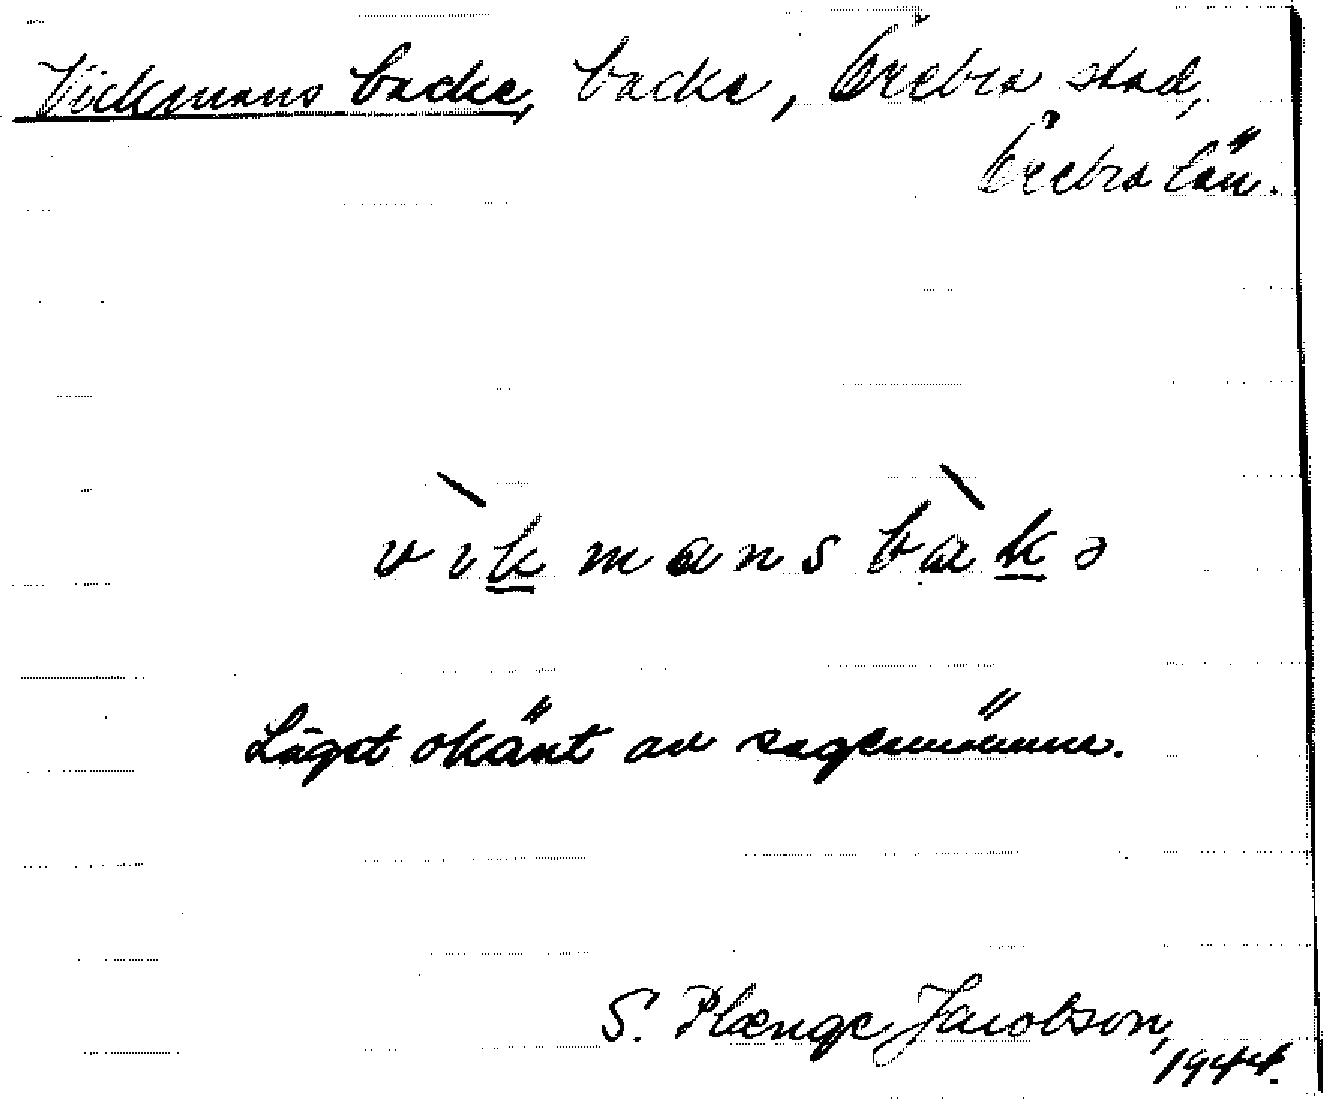 Vickmans backe, backe, Örebro stad,
Örebro län.
vìk mans bàkə
Läget okänt av sagesmännen.
S. Plænge Jacobson,
1944.